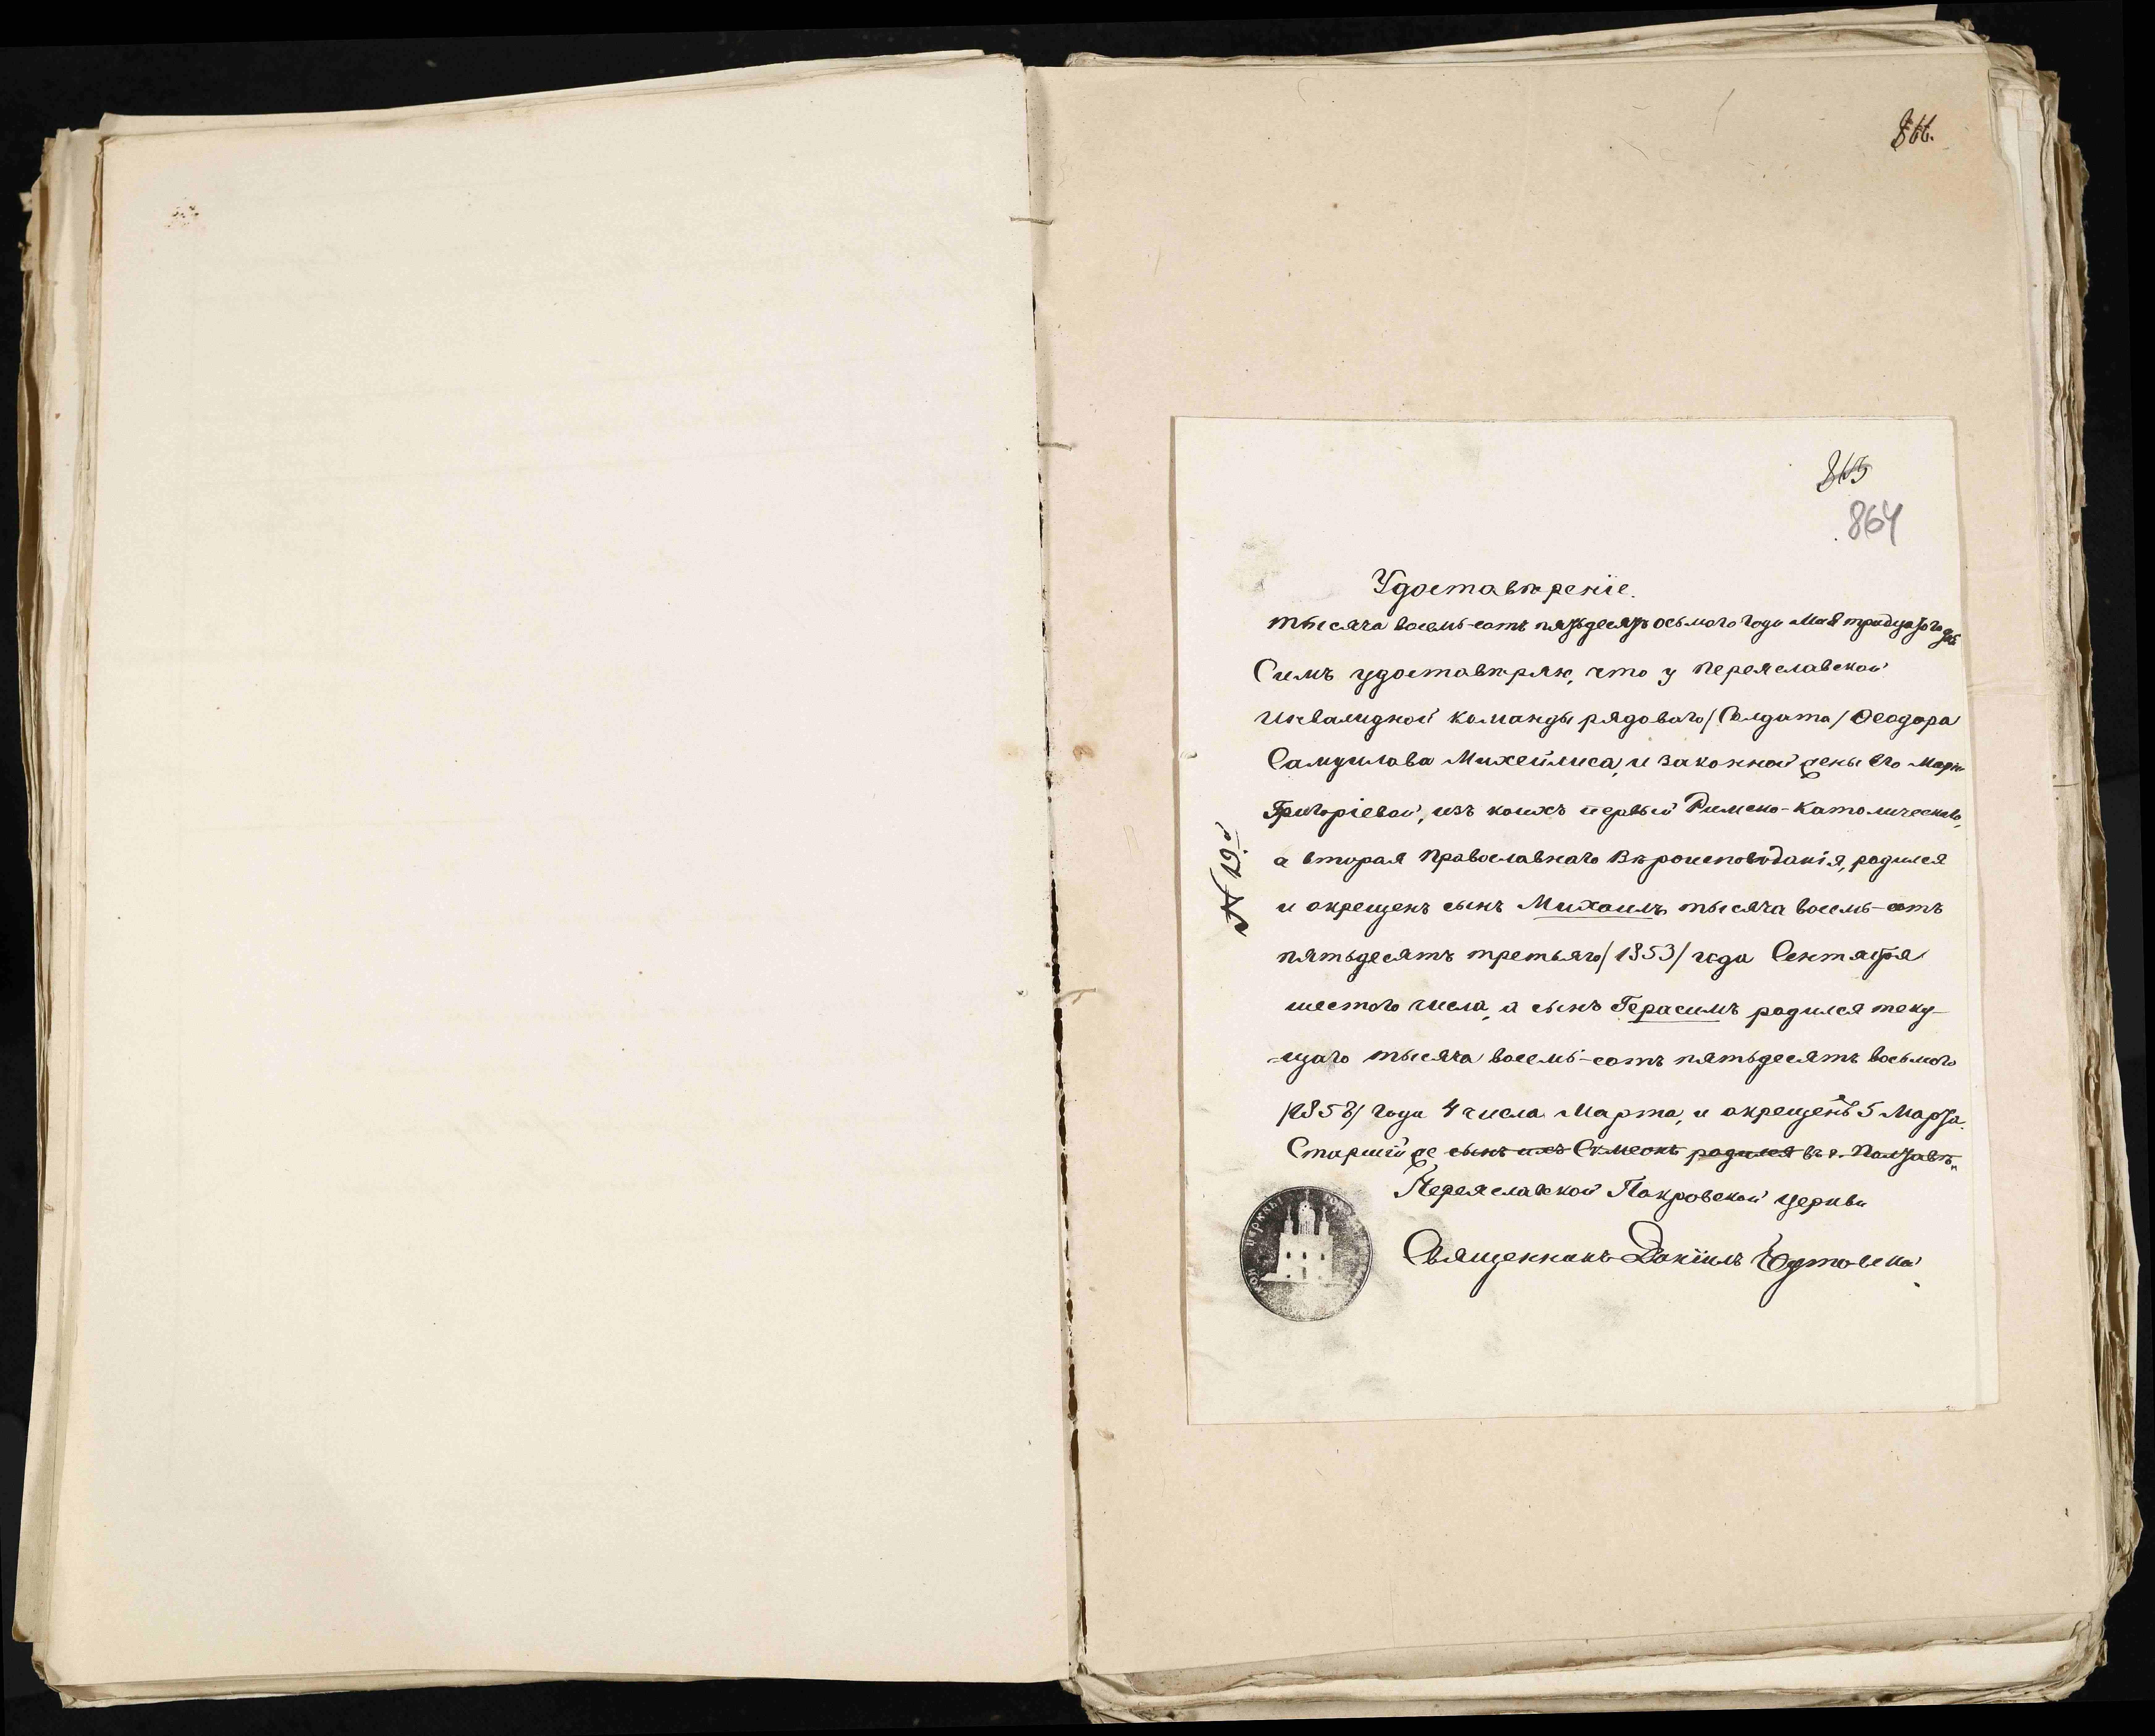 866.
865
864
Удостовѣреніе.
тысяча восемь-сотъ пятьдесятъ осьмого года Мая тридцатого дня
Симъ удостовѣряю, что у Переяславской
инвалидной команды рядоваго/Солдата/Ѳеодора
Самуилова Михейлиса, и законной жены его Маріи
Григоріевой, изъ коихъ первый Римско-Католическаго,
а вторая Православнаго Вѣроисповѣданія, родился
и окрещенъ сынъ Михаилъ тысяча восемь-сотъ
пятьдесятъ третьяго/1853/года Сентября
шестого числа, а сынъ Герасимъ родился теку-
-щаго тысяча восемь-сотъ пятьдесятъ восьмого
/1858/ года 4 числа Марта, и окрещенъ 5 Марта.
Старшій же сынъ ихъ Симеонъ родился въ г. Полтавѣ.
Переяславской Покровской церкви
Священникъ Даніилъ
№ 19й
церкви